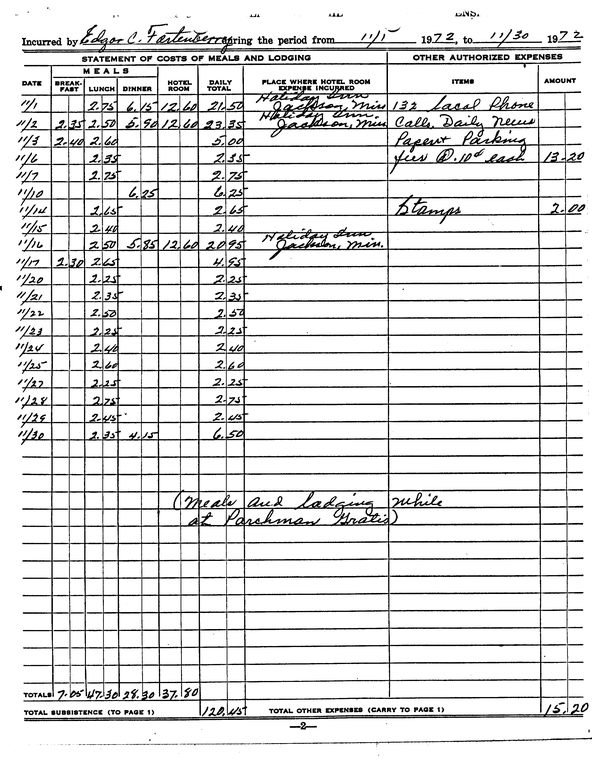 Incurred by Edgar C. Fortenberry during the period from 11/1 1972, to 11/30 1972
STATEMENT OF COSTS OF MEALS AND LODGING OTHER AUTHORIZED EXPENSES
MEALS
DATE BREAK-FAST LUNCH DINNER HOTEL ROOM DAILY TOTAL PLACE WHERE HOTEL ROOM EXPENSE INCURRED ITEMS AMOUNT
11/1 2.75 6.15 12.60 21.50 Holiday Inn Jackson, Miss 132 Local Phone
11/2 2.35 2.50 5.90 12.60 23.35 Holiday Inn Jackson, Miss Calls, Daily News
11/3 2.40 2.60 5.00 Paper & Parking
11/6 2.35 2.35 fees @ .10¢ each 13.20
11/7 2.75 2.75
11/10 6.25 6.25
11/14 2.65 2.65 Stamps 2.00
11/15 2.40 2.40
11/16 2.50 5.85 12.60 20.95 Holiday Inn Jackson, Miss.
11/17 2.30 2.65 4.95
11/20 2.25 2.25
11/21 2.35 2.35
11/22 2.50 2.50
11/23 2.25 2.25
11/24 2.40 2.40
11/25 2.60 2.60
11/27 2.25 2.25
11/28 2.75 2.75
11/29 2.45 2.45
11/30 2.35 4.15 6.50
(Meals and lodging while
at Parchman Gratis)
TOTALS 7.05 47.30 28.30 37.80
TOTAL SUBSISTENCE (TO PAGE 1) 120.45 TOTAL OTHER EXPENSES (CARRY TO PAGE 1) 15.20
—2—